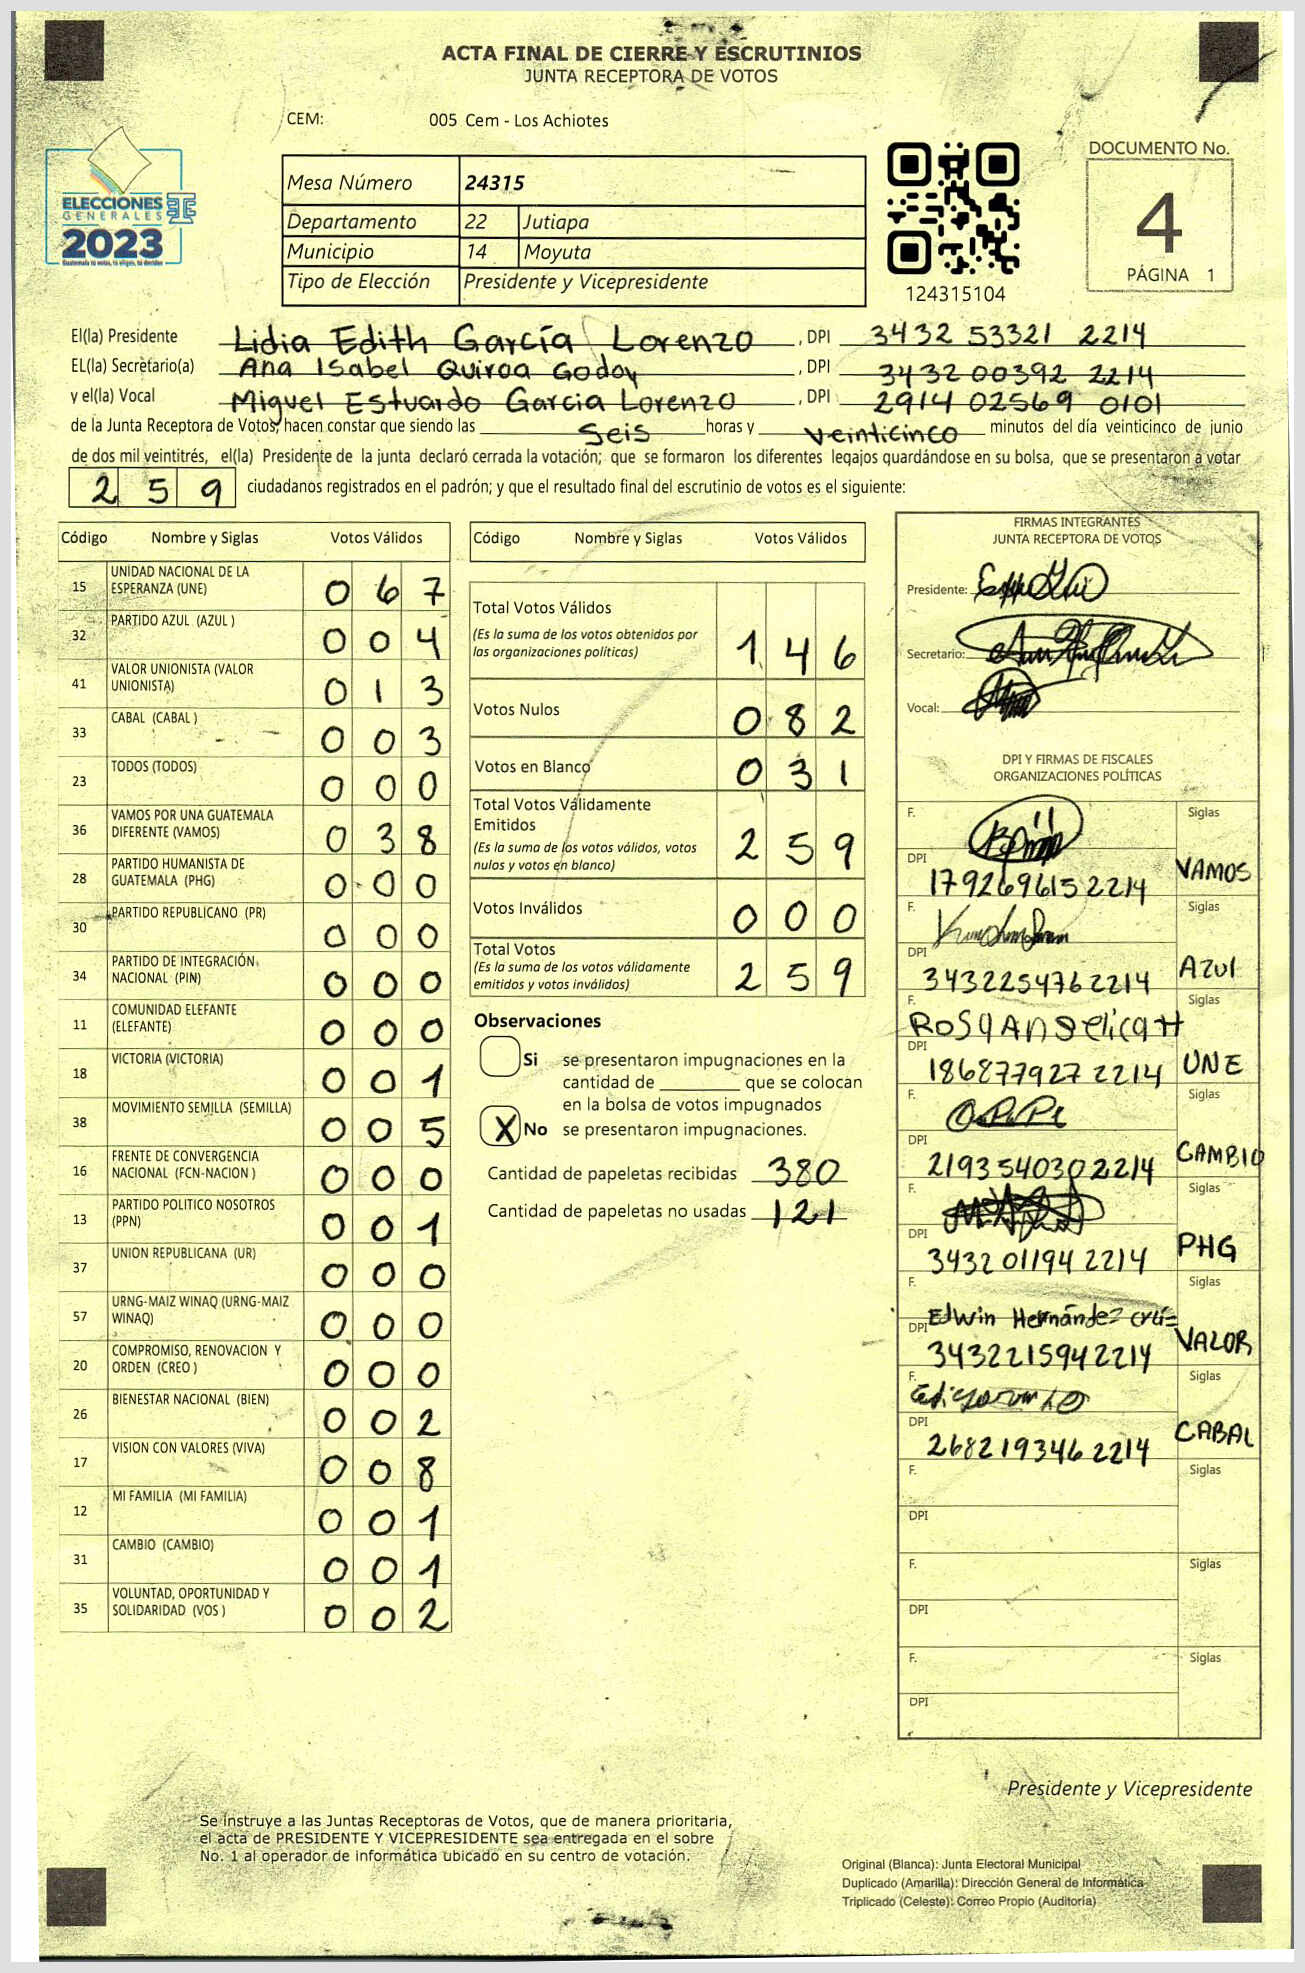 ACTA FINAL DE CIERRE Y ESCRUTINIOS
JUNTA RECEPTORA DE VOTOS
CEM: 005 Cem - Los Achiotes
ELECCIONES
GENERALES
2023
Guatemala tú votas, tú eliges, tú decides
Mesa Número 24315
Departamento 22 Jutiapa
Municipio 14 Moyuta
Tipo de Elección Presidente y Vicepresidente
124315104
DOCUMENTO No.
4
PÁGINA 1
El(la) Presidente Lidia Edith García Lorenzo , DPI 3432 53321 2214
EL(la) Secretario(a) Ana Isabel Quiroa Godoy , DPI 3432 00392 2214
y el(la) Vocal Miguel Estuardo Garcia Lorenzo , DPI 2914 02569 0101
de la Junta Receptora de Votos, hacen constar que siendo las Seis horas y veinticinco minutos del día veinticinco de junio
de dos mil veintitrés, el(la) Presidente de la junta declaró cerrada la votación; que se formaron los diferentes legajos guardándose en su bolsa, que se presentaron a votar
259 ciudadanos registrados en el padrón; y que el resultado final del escrutinio de votos es el siguiente:
Código Nombre y Siglas Votos Válidos
15 UNIDAD NACIONAL DE LA
ESPERANZA (UNE) 0 6 7
32 PARTIDO AZUL (AZUL ) 0 0 4
41 VALOR UNIONISTA (VALOR
UNIONISTA) 0 1 3
33 CABAL (CABAL ) 0 0 3
23 TODOS (TODOS) 0 0 0
36 VAMOS POR UNA GUATEMALA
DIFERENTE (VAMOS) 0 3 8
28 PARTIDO HUMANISTA DE
GUATEMALA (PHG) 0 0 0
30 PARTIDO REPUBLICANO (PR) 0 0 0
34 PARTIDO DE INTEGRACIÓN
NACIONAL (PIN) 0 0 0
11 COMUNIDAD ELEFANTE
(ELEFANTE) 0 0 0
18 VICTORIA (VICTORIA) 0 0 1
38 MOVIMIENTO SEMILLA (SEMILLA) 0 0 5
16 FRENTE DE CONVERGENCIA
NACIONAL (FCN-NACION ) 0 0 0
13 PARTIDO POLITICO NOSOTROS
(PPN) 0 0 1
37 UNION REPUBLICANA (UR) 0 0 0
57 URNG-MAIZ WINAQ (URNG-MAIZ
WINAQ) 0 0 0
20 COMPROMISO, RENOVACION Y
ORDEN (CREO ) 0 0 0
26 BIENESTAR NACIONAL (BIEN) 0 0 2
17 VISION CON VALORES (VIVA) 0 0 8
12 MI FAMILIA (MI FAMILIA) 0 0 1
31 CAMBIO (CAMBIO) 0 0 1
35 VOLUNTAD, OPORTUNIDAD Y
SOLIDARIDAD (VOS ) 0 0 2
Código Nombre y Siglas Votos Válidos
Total Votos Válidos
(Es la suma de los votos obtenidos por
las organizaciones políticas) 1 4 6
Votos Nulos 0 8 2
Votos en Blanco 0 3 1
Total Votos Válidamente
Emitidos
(Es la suma de los votos válidos, votos
nulos y votos en blanco) 2 5 9
Votos Inválidos 0 0 0
Total Votos
(Es la suma de los votos válidamente
emitidos y votos inválidos) 2 5 9
Observaciones
Si se presentaron impugnaciones en la
cantidad de ________ que se colocan
en la bolsa de votos impugnados
X No se presentaron impugnaciones.
Cantidad de papeletas recibidas 380
Cantidad de papeletas no usadas 121
FIRMAS INTEGRANTES
JUNTA RECEPTORA DE VOTOS
Presidente:
Secretario:
Vocal:
DPI Y FIRMAS DE FISCALES
ORGANIZACIONES POLÍTICAS
F. Siglas
DPI 179269615 2214 VAMOS
F. Siglas
DPI 3432254762214 AZUl
F. Rosa Angelica H Siglas
DPI 186877927 2214 UNE
F. Siglas
DPI 2193540302214 CAMBIO
F. Siglas
DPI 3432 01194 2214 PHG
F. Edwin Hernández Siglas
DPI 3432215942214 VALOR
F. Siglas
DPI 268219346 2214 CABAL
F. Siglas
DPI
F. Siglas
DPI
F. Siglas
DPI
Presidente y Vicepresidente
Se instruye a las Juntas Receptoras de Votos, que de manera prioritaria,
el acta de PRESIDENTE Y VICEPRESIDENTE sea entregada en el sobre
No. 1 al operador de informática ubicado en su centro de votación.
Original (Blanca): Junta Electoral Municipal
Duplicado (Amarilla): Dirección General de Informática
Triplicado (Celeste): Correo Propio (Auditoría)